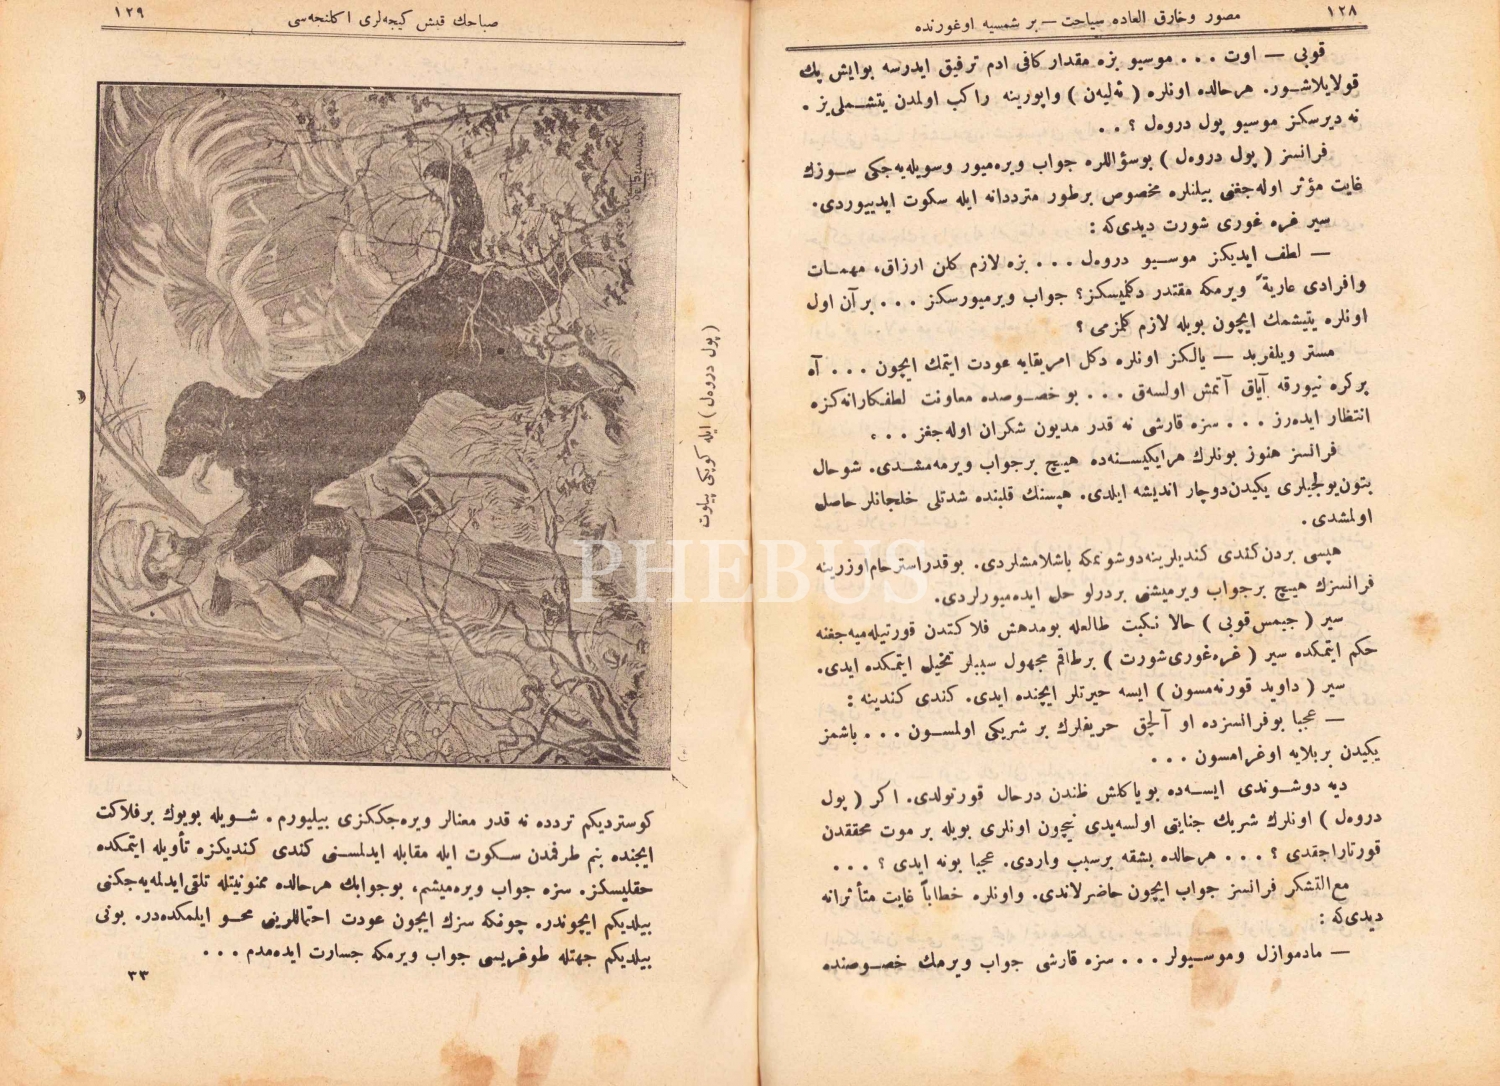 ١٢٨
مصور وخارق العاده سياحت — بر شمسيه اوغورنده
قوبی — اوت . . . موسيو بزه مقدار كافی ادم ترفيق ايدرسه بوايش پك
قولايلاشور. هرحالده اونلره ( ئه‌ليه‌ن ) واپورينه راكب اولمدن يتشملی‌يز .
نه ديرسكز موسيو پول دروه‌ل ؟ . .
فرانسز ( پول دروه‌ل ) بوسؤاللره جواب ويره‌ميور وسويله‌يه‌جكی سوزك
غايت مؤثر اوله‌جغنی بيلنلره مخصوص برطور مترددانه ايله سكوت ايدييوردی.
سير غره غوری شورت ديدی‌كه :
— لطف ايديكز موسيو دروه‌ل . . . بزه لازم كلن ارزاق، مهمات
وافرادی عارية ويرمكه مقتدر دكلميسكز؟ جواب ويرميورسكز . . . بر آن اول
اونلره يتيشمك ايچون بويله لازم كلمزمی ؟
مستر ويلفريد — يالكز اونلره دكل امريقايه عودت ايتمك ايچون . . . آه
بركره نيورقه آياق آتمش اولسه‌ق . . . بو خصوصده معاونت لطفكارانه‌كزه
انتظار ايده‌رز . . . سزه قارشی نه قدر مديون شكران اوله‌جغز . . .
فرانسز هنوز بونلرك هرايكيسنه‌ده هيچ برجواب ويرمه‌مشدی. شو حال
بتون‌يولجيلری يكيدن‌دوچار انديشه ايلدی. هپسنك قلبنده شدتلی خلجانلر حاصل
اولمشدی .
هپسی بردن‌كندی كنديلرينه‌دوشونمكه باشلامشلردی. بوقدراسترحام‌اوزرينه
فرانسزك هيچ برجواب ويرميشنی بردرلو حل ايده‌ميورلردی.
سير ( جيمس‌قوبی ) حالا نكبت طالعله بومدهش فلاكتدن قورتيله‌ميه‌جغنه
حكم ايتمكده سير ( غره‌غوری‌شورت ) برطاقم مجهول سببلر تخيل ايتمكده ايدی.
سير ( داويد قورنه‌مسون ) ايسه حيرتلر ايچنده ايدی. كندی كندينه :
— عجبا بوفرانسزده او آلچق حريفلرك بر شريكی اولمسون . . . باشمز
يكيدن بربلايه اوغرامسون . . .
ديه دوشوندی ايسه‌ده بوياكلش ظندن درحال قورتولدی. اكر ( پول
دروه‌ل ) اونلرك شريك جنايتی اولسه‌يدی نيچون اونلری بويله بر موت محققدن
قورتاراجقدی ؟ . . . هرحالده بشقه برسبب واردی. عجبا بونه ايدی ؟ . . .
مع‌التشكر فرانسز جواب ايچون حاضرلاندی. واونلره خطاباً غايت متأثرانه
ديدی‌كه :
— مادموازل وموسيولر . . . سزه قارشی جواب ويرمك خصوصنده
صباحك قيش كيجه‌لری اكلنجه‌سی
١٢٩
( پول دروه‌ل ) ايله كوپكی پيلوت
كوستردیكم تردده نه قدر معنالر ويره‌جككزی بيليورم . شويله بويوك برفلاكت
ايچنده بنم طرفمدن سكوت ايله مقابله ايدلمسنی كندی كنديكزه تأويله ايتمكده
حقليسكز. سزه جواب ويره‌ميشم، بوجوابك هرحالده ممنونيتله تلقی‌ايدلمه‌يه‌جكنی
بيلديكم ايچوندر. چونكه سزك ايچون عودت احتماللرينی محو ايلمكده‌در. بونی
بيلديكم جهتله طوغريسی جواب ويرمكه جسارت ايده‌مدم . . .
٣٣
PHEBUS